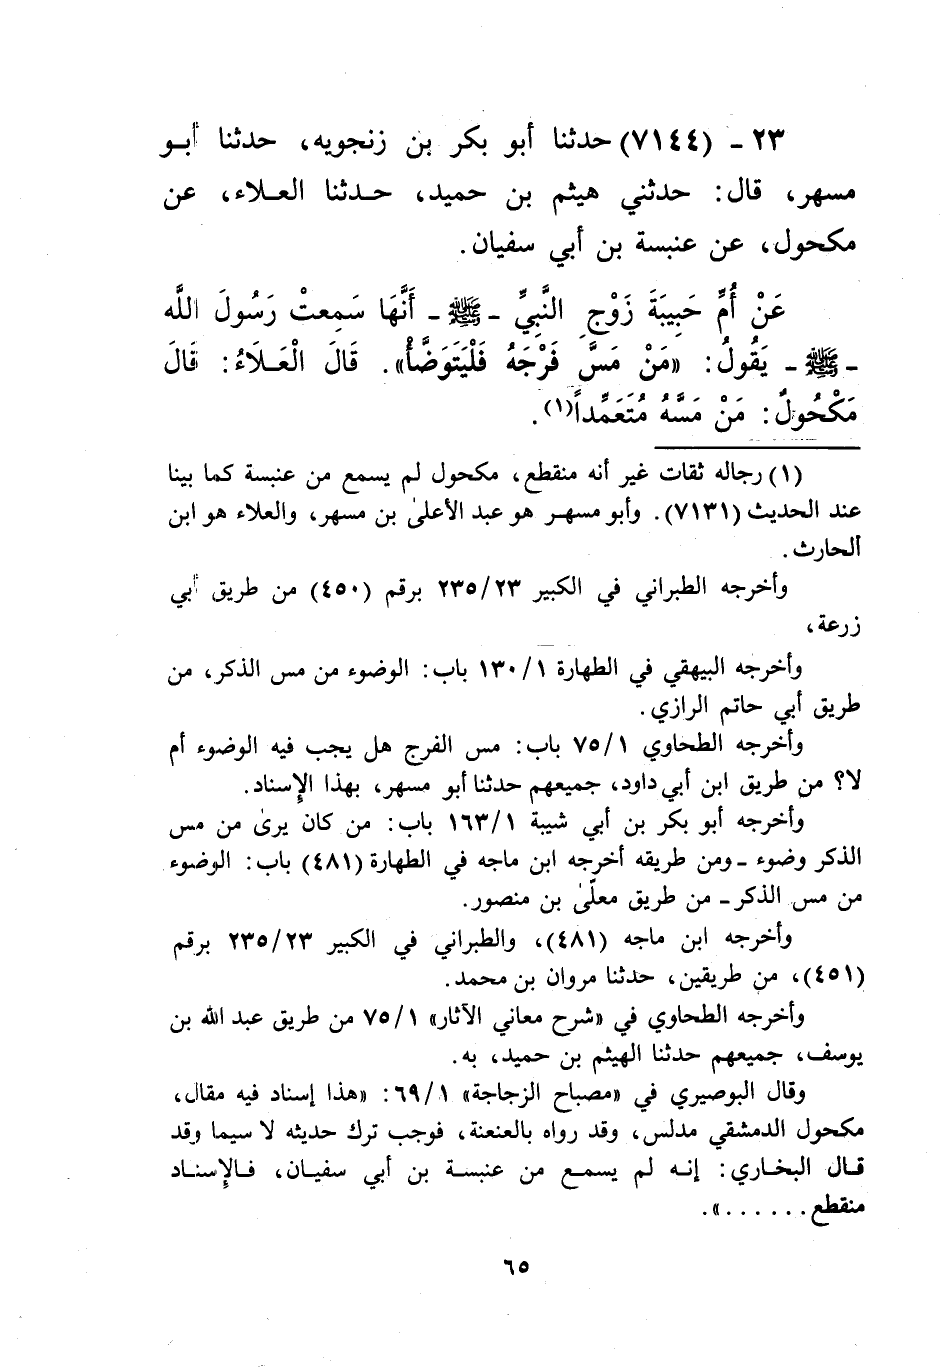 ٢٣ ـ (٧١٤٤) حدثنا أبو بكر بن زنجويه، حدثنا أبـو
مسهر، قال: حدثني هيثم بن حميد، حـدثنا العـلاء، عن
مكحول، عن عنبسة بن أبي سفيان.
عَنْ أُمِّ حَبِيبَةَ زَوْجِ النَّبِيِّ ـ ﷺ ـ أَنَّهَا سَمِعتْ رَسُولَ اللَّه
ـ ﷺ ـ يَقُولُ: «مَنْ مَسَّ فَرْجَهُ فَلْيَتَوَضَّأْ». قَالَ الْعَـلاَءُ: قَالَ
مَكْحُولٌ: مَنْ مَسَّهُ مُتَعَمِّداً(١).
(١) رجاله ثقات غير أنه منقطع، مكحول لم يسمع من عنبسة كما بينا
عند الحديث (٧١٣١). وأبو مسهـر هو عبد الأعلىٰ بن مسهر، والعلاء هو ابن
الحارث.
وأخرجه الطبراني في الكبير ٢٣/ ٢٣٥ برقم (٤٥٠) من طريق أبي
زرعة،
وأخرجه البيهقي في الطهارة ١/ ١٣٠ باب: الوضوء من مس الذكر، من
طريق أبي حاتم الرازي.
وأخرجه الطحاوي ١/ ٧٥ باب: مس الفرج هل يجب فيه الوضوء أم
لا؟ من طريق ابن أبي داود، جميعهم حدثنا أبو مسهر، بهذا الإسناد.
وأخرجه أبو بكر بن أبي شيبة ١/ ١٦٣ باب: من كان يرىٰ من مس
الذكر وضوء ـ ومن طريقه أخرجه ابن ماجه في الطهارة (٤٨١) باب: الوضوء
من مس الذكر ـ من طريق معلّىٰ بن منصور.
وأخرجه ابن ماجه (٤٨١)، والطبراني في الكبير ٢٣/ ٢٣٥ برقم
(٤٥١)، من طريقين، حدثنا مروان بن محمد.
وأخرجه الطحاوي في «شرح معاني الآثار» ١/ ٧٥ من طريق عبد الله بن
يوسف، جميعهم حدثنا الهيثم بن حميد، به.
وقال البوصيري في «مصباح الزجاجة» ١/ ٦٩: «هذا إسناد فيه مقال،
مكحول الدمشقي مدلس، وقد رواه بالعنعنة، فوجب ترك حديثه لا سيما وقد
قـال البخاري: إنـه لم يسمـع من عنبسـة بن أبي سفيـان، فـالإسنـاد
منقطع......».
٦٥